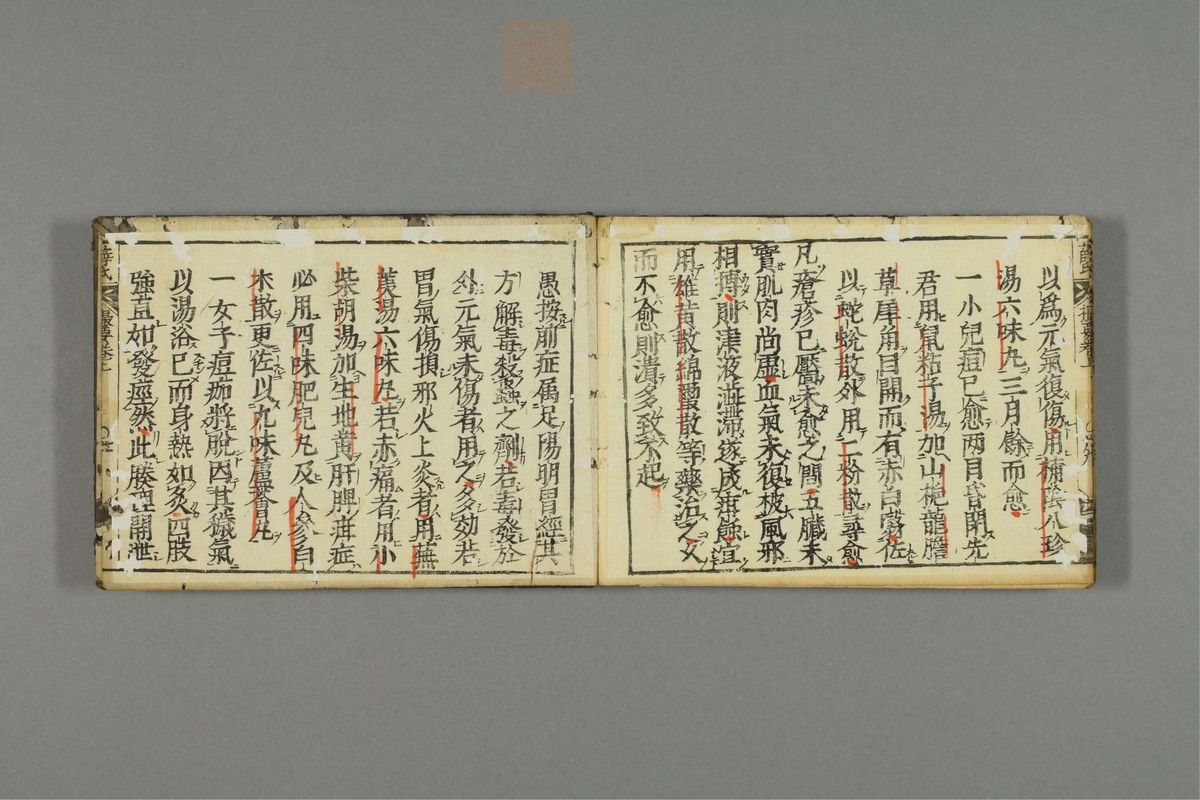 以爲元氣復傷用補陰八珍
湯六味丸三月餘而愈
一小兒痘已愈兩目昔閉先
君用鼠粘子湯加山梔龍膽
草犀角目開而有赤白翳佐
以蛇蛻散外用二粉散尋愈
凡瘡疹已靨未愈之間五臟未
實肌肉尚虛血氣未復被風邪
相搏則津液澁滯遂成疳蝕宜
用雄黄散綿蠒散等藥治之久
而不愈則潰多致不起
愚按前症属足陽明胃經其
方解毒殺蟲之劑若毒發於
外元氣未傷者用之多効若
胃氣傷損邪火上炎者用蕪
荑湯六味丸若赤痛者用小
柴胡湯加生地黄肝脾疳症
必用四味肥兒丸及人參白
朮散更佐以九味蘆薈丸
一女子痘痂將脫因其穢氣
以湯浴已而身熱如炙四肢
強直如發痙然此腠理開泄